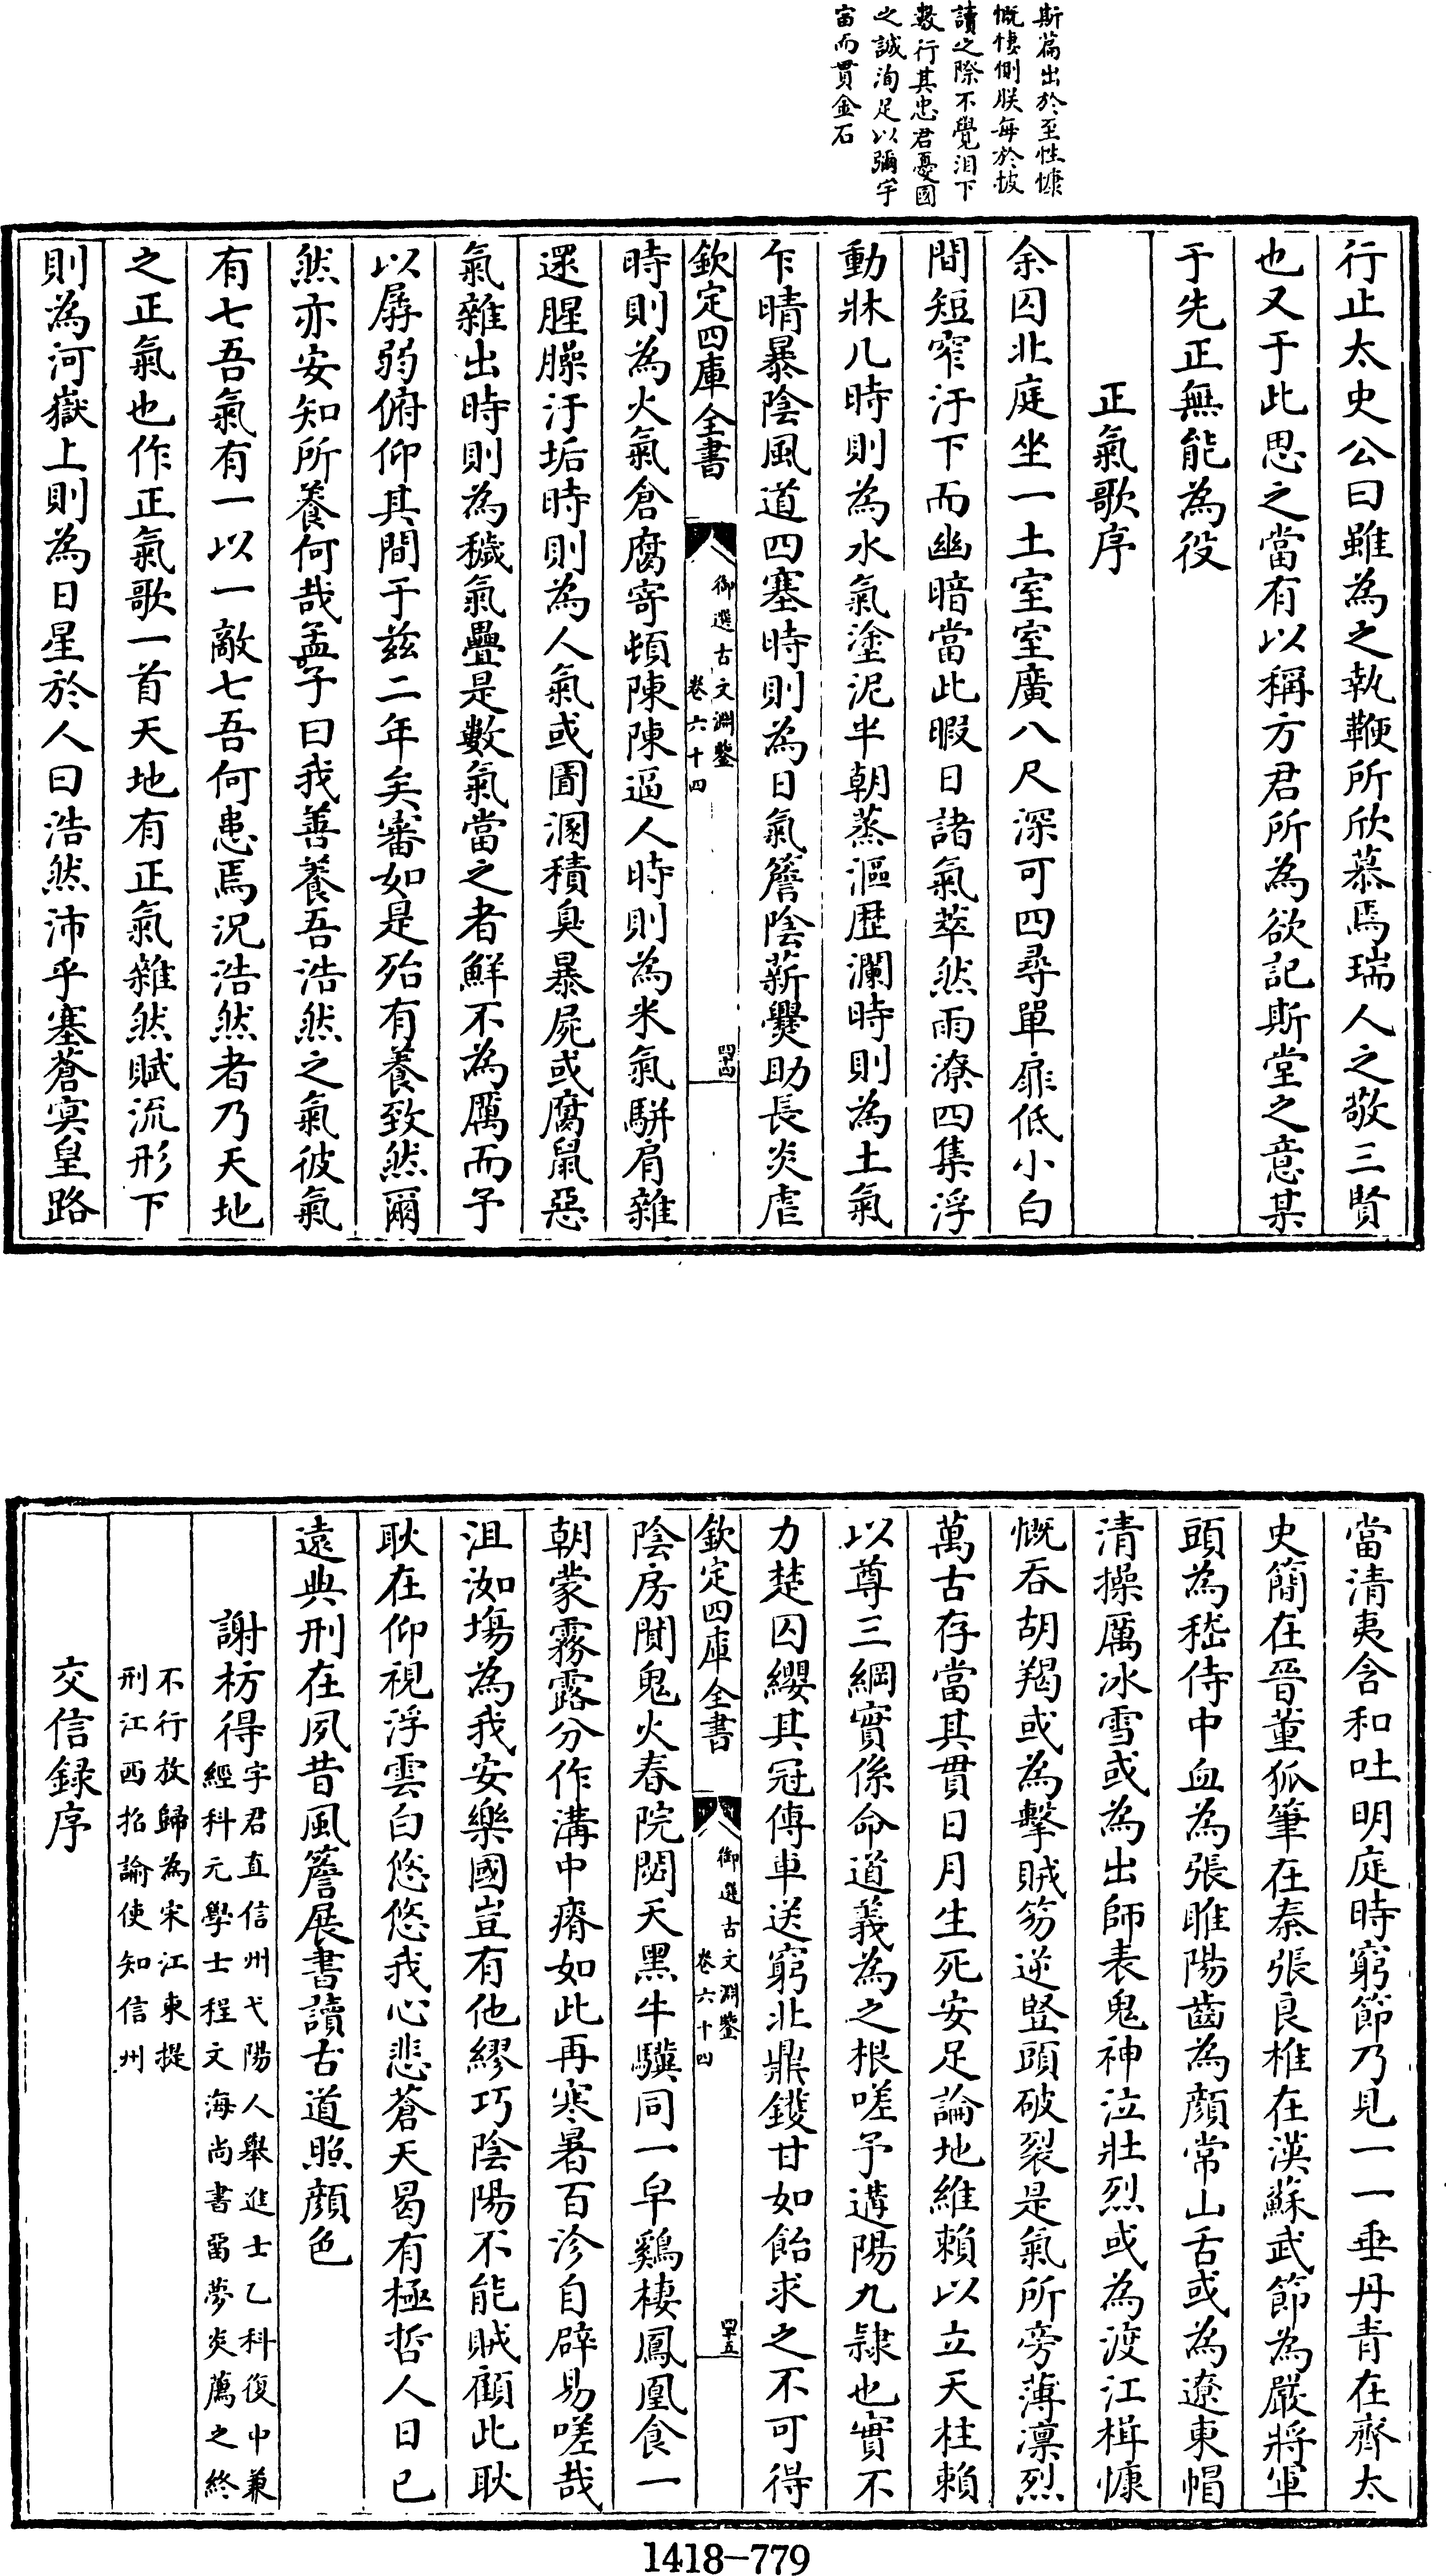 斯篇出於至性慷
慨悽惻朕每於披
讀之際不覺泪下
數行其忠君憂國
之誠洵足以彌宇
宙而貫金石
行止太史公曰雖為之執鞭所欣慕焉瑞人之敬三賢
也又于此思之當有以稱方君所為欲記斯堂之意某
于先正無能為役
正氣歌序
余囚北庭坐一土室室廣八尺深可四尋單扉低小白
間短窄汙下而幽暗當此暇日諸氣萃然雨潦四集浮
動牀几時則為水氣塗泥半朝蒸漚歴瀾時則為土氣
乍晴暴陰風道四塞時則為日氣簷陰薪爨助長炎虐
欽定四庫全書
御選古文淵鑒
卷六十四
四十四
時則為火氣倉腐寄頓陳陳逼人時則為米氣駢肩雜
遝腥臊汙垢時則為人氣或圊溷積臭暴屍或腐鼠惡
氣雜出時則為穢氣疊是數氣當之者鮮不為厲而予
以孱弱俯仰其間于兹二年矣審如是殆有養致然爾
然亦安知所養何哉孟子曰我善養吾浩然之氣彼氣
有七吾氣有一以一敵七吾何患焉況浩然者乃天地
之正氣也作正氣歌一首天地有正氣雜然賦流形下
則為河嶽上則為日星於人曰浩然沛乎塞蒼㝠皇路
當清夷含和吐明庭時窮節乃見一一垂丹青在齊太
史簡在晉董狐筆在秦張良椎在漢蘇武節為嚴將軍
頭為嵇侍中血為張睢陽齒為顔常山舌或為遼東帽
清操厲冰雪或為出師表鬼神泣壯烈或為渡江楫慷
慨吞胡羯或為擊賊笏逆豎頭破裂是氣所旁薄凛烈
萬古存當其貫日月生死安足論地維賴以立天柱賴
以尊三綱實係命道義為之根嗟予遘陽九隸也實不
力楚囚纓其冠傳車送窮北鼎鑊甘如飴求之不可得
欽定四庫全書
御選古文淵鑒
卷六十四
四十五
陰房閴鬼火春院閟天黑牛驥同一皁鷄棲鳳凰食一
朝蒙霧露分作溝中瘠如此再寒暑百沴自辟易嗟哉
沮洳塲為我安樂國豈有他繆巧陰陽不能賊顧此耿
耿在仰視浮雲白悠悠我心悲蒼天曷有極哲人日已
遠典刑在夙昔風簷展書讀古道照顔色
謝枋得字君直信州弋陽人舉進士乙科復中兼
經科元學士程文海尚書留夢炎薦之終
不行放歸為宋江東提
刑江西招諭使知信州
交信録序
1418-779